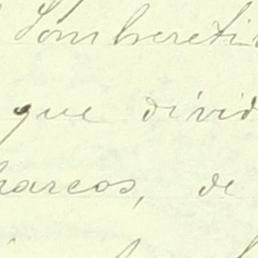 Sombreti
que divid
arcos, de